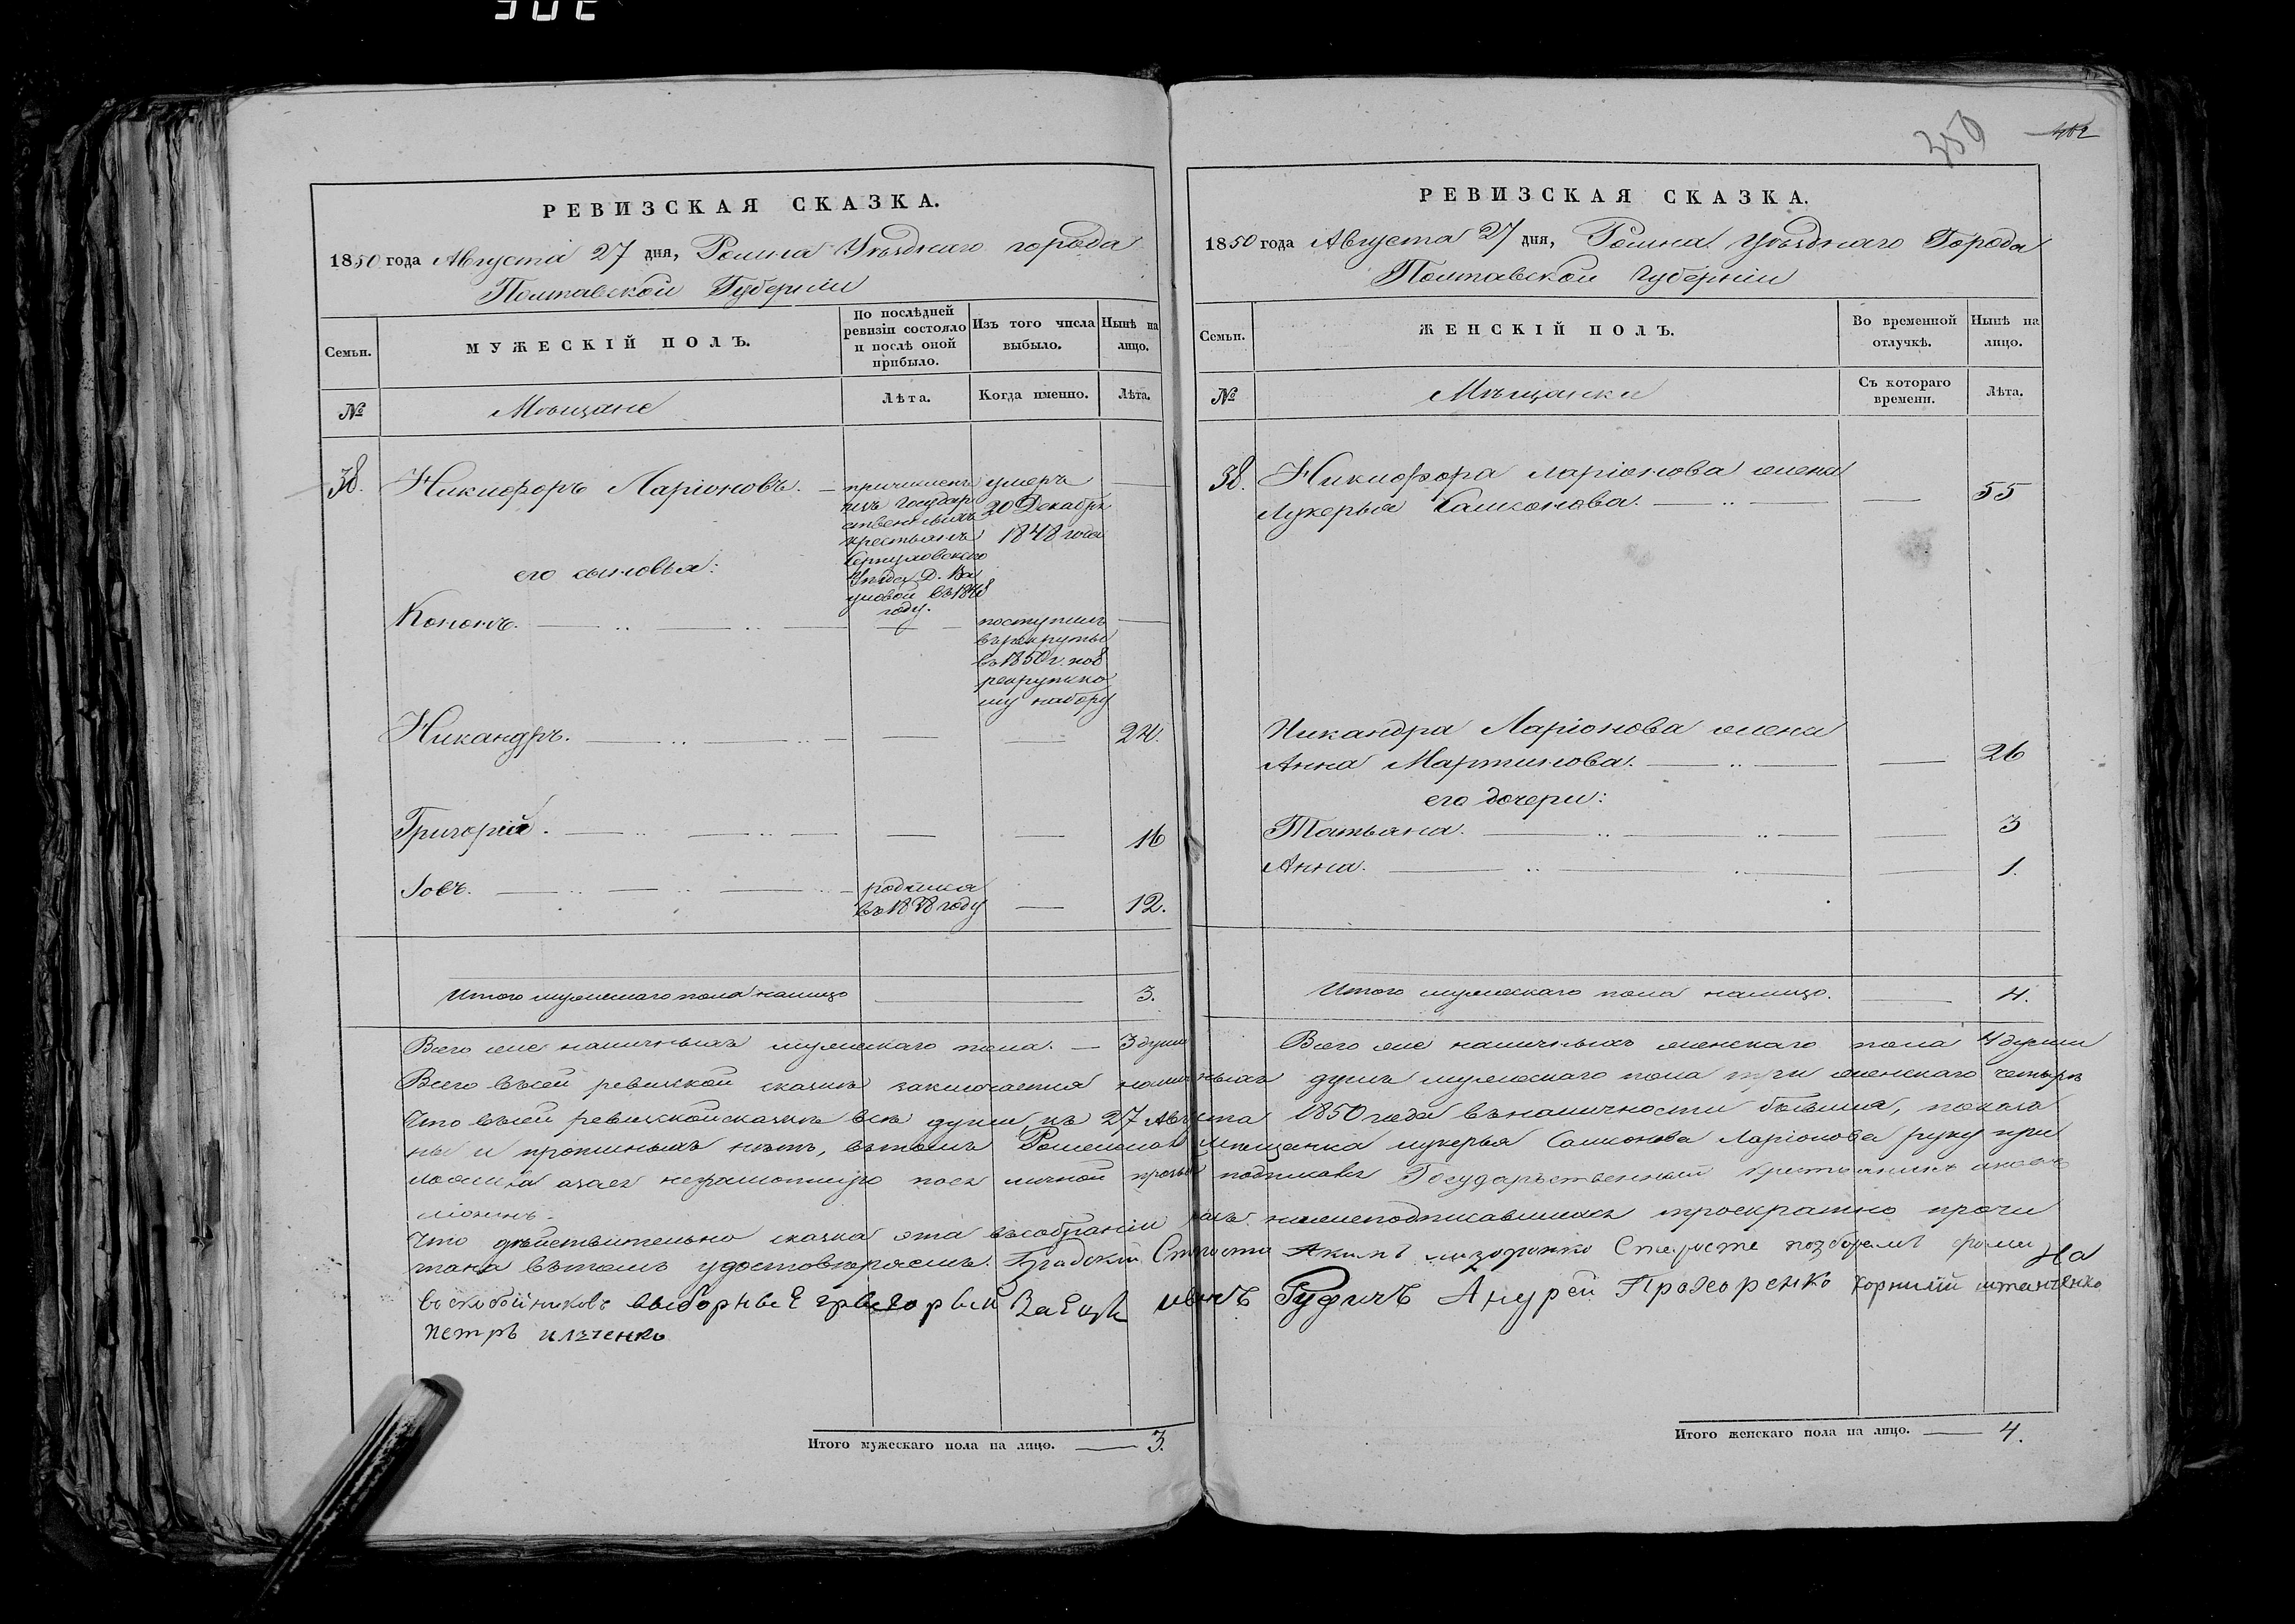 302
РЕВИЗСКАЯ СКАЗКА.
1850 года Августа 27 дня, Ромна Уѣзднаго города
Полтавской Губерніи
Семьи.
МУЖЕСКІЙ ПОЛЪ.
По послѣдней
ревизіи состояло
и послѣ оной
прибыло.
Изъ того числа
выбыло.
Нынѣ на
лицо.
№
Мѣщане
Лѣта.
Когда именно.
Лѣта.
38.
Никифоръ Ларіоновъ.
причисленъ
изъ Государ
ственныхъ
крестьянъ
уѣзда Д. Ва
въ 1848
году.
умеръ
20 Декабря
1848 года
его сыновья:
Кононъ.
поступилъ
въ рекруты
въ 1850 г. по 8
рекрутско
му набору
Никандръ.
24.
Григорій.
16
Іовъ.
родился
въ 1838 году
12.
Итого мужескаго пола налицо
3.
350
402
РЕВИЗСКАЯ СКАЗКА.
1850 года Августа 27 дня, Ромна Уѣзднаго Города
Полтавской Губерніи
Семьи.
ЖЕНСКІЙ ПОЛЪ.
Во временной
отлучкѣ.
Нынѣ на
лицо.
№
Мѣщанки
Съ котораго
времени.
Лѣта.
38.
Никифора Ларіонова жена
Лукерья Самсонова.
55
Никандра Ларіонова жена
Анна Мартинова.
26
его дочери:
Татьяна.
3
Анна.
1.
Итого мужескаго пола налицо.
4.
Всего же наличныхъ мужескаго пола. 3 души
Всего же наличныхъ женскаго пола 4 души
Всего въ сей ревизской сказкѣ заключается наличныхъ душъ мужескаго пола три женскаго четыре
Что въ сей ревизской сказкѣ всѣ души къ 27 Августа 1850 года въ наличности бывшия, показа
ны и прописныхъ нѣтъ, въ томъ Роменская мѣщанка Лукерья Самсонова Ларіонова руку при
ложила а за ея неграмотную по ея личной прозьбѣ подписался Государственный крестьянинъ
Что дѣйствительно сказка эта въ собраніи насъ нижеподписавшихся троекратно прочи
тана въ томъ удостовѣряемъ. Градскій Староста Акимъ
воскобойниковъ выборные григорый Заецъ иванъ Руфичъ Андрей Прохоренко
Петръ илченко
Итого мужескаго пола на лицо. 3.
Итого женскаго пола на лицо. 4.